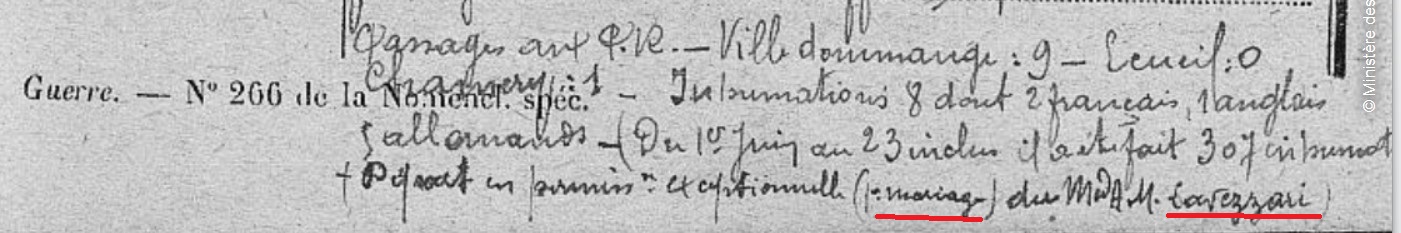 Passages aux P.R. — Ville dommange : 9 — Ecueil : 0
Chamery : 1 — Inhumations 8 dont 2 français, 1 anglais
Guerre. — N° 266 de la Nomencl. spéc.
5 allemands — (Du 1er Juin au 23 inclus il a été fait 307 inhumat
+ Départ en permissn exceptionnelle (pr mariage) du Méd A.M. Lavezzari
© Ministère des